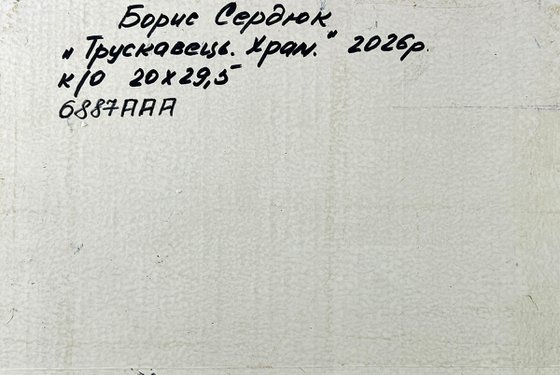 Борис Сердюк
„Трускавець. Храм." 2026р.
к/о 20х29,5
6887ААА